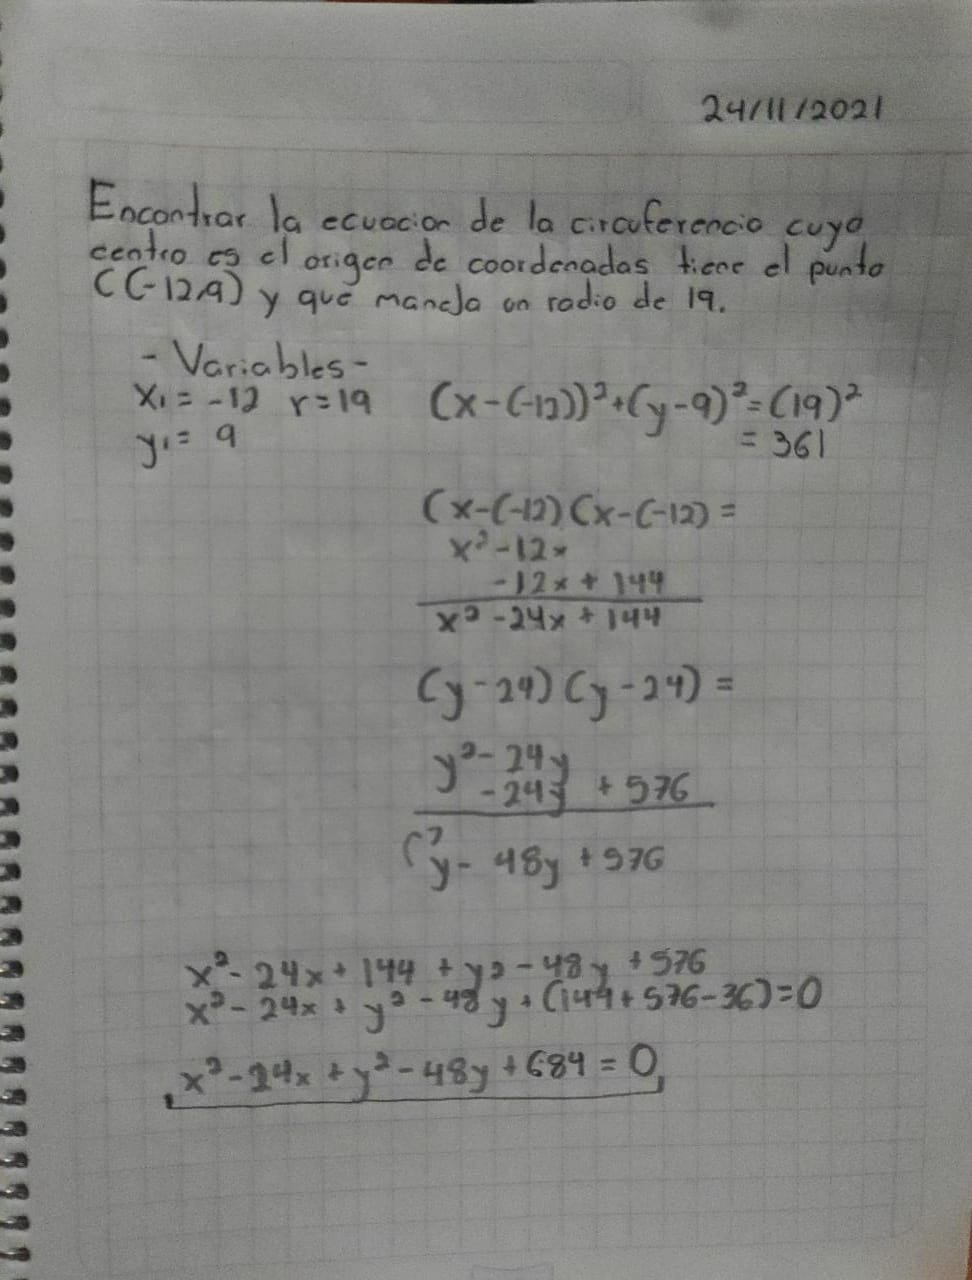 24/11/2021
Encontrar la ecuacion de la circuferencia cuyo
centro es el origen de coordenadas tiene el punto
C(-12,9) y que maneja un radio de 19.
- Variables -
x₁ = -12 r = 19 (x-(-12))²+(y-9)²=(19)²
y₁ = 9 = 361
(x-(-12)(x-(-12) =
x²-12x
-12x + 144
x² -24x + 144
(y-24)(y-24) =
y²- 24y
-24y + 576
(²y- 48y + 576
x²- 24x + 144 + y² - 48y + 576
x² - 24x + y² - 48y + (144 + 576-36)=0
x²-24x + y²-48y + 684 = 0